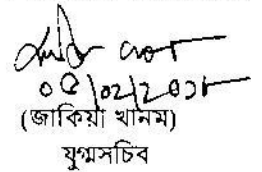 ০৫/০২/২০১৮
(জাকিয়া খানম)
যুগ্মসচিব